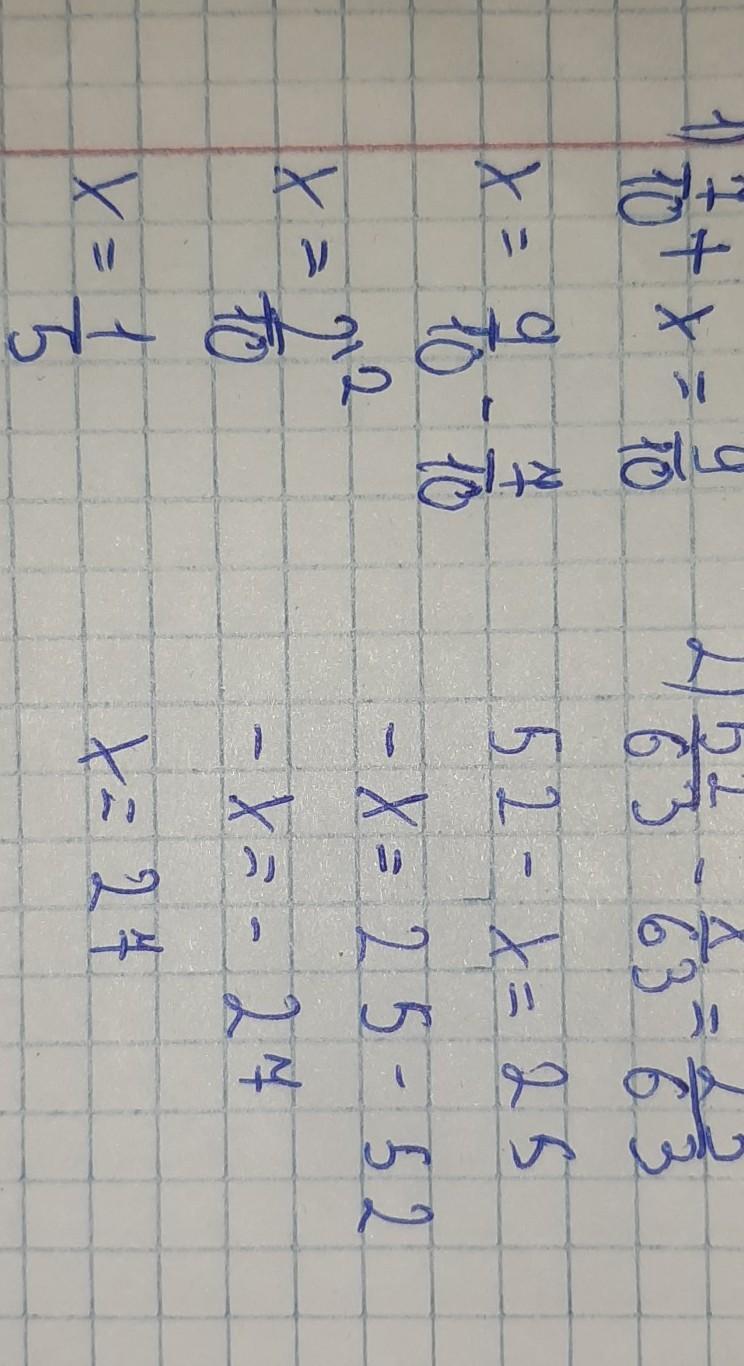 1) 7/10 + x = 9/10
x = 9/10 - 7/10
x = 2\2/10
x = 1/5
2) 52/63 - x/63 = 25/63
52 - x = 25
- x = 25 - 52
- x = - 27
x = 27